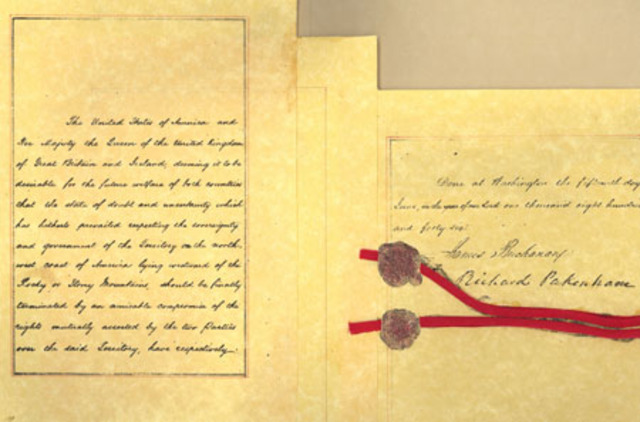 The United States of America and
Her Majesty the Queen of the United Kingdom
of Great Britain and Ireland, deeming it to be
desirable for the future welfare of both countries
that the state of doubt and uncertainty which
has hitherto prevailed respecting the sovereignty
and government of the Territory on the north-
west coast of America lying westward of the
Rocky or Stony Mountains, should be finally
terminated by an amicable compromise of the
rights mutually asserted by the two Parties
over the said Territory, have respectively
Done at Washington the fifteenth day
June, in the year of our Lord one thousand eight hundred
and forty six.
James Buchanan
Richard Pakenham